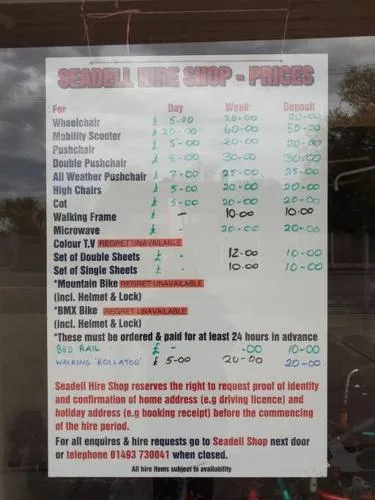 SEADELL HIRE SHOP - PRICES
For Day Week Deposit
Wheelchair £ 5-00 20-00 20-00
Mobility Scooter £ 20-00 60-00 50-00
Pushchair £ 5-00 20-00 20-00
Double Pushchair £ 8-00 30-00 30-00
All Weather Pushchair £ 7-00 25-00 25-00
High Chairs £ 5-00 20-00 20-00
Cot £ 5-00 20-00 20-00
Walking Frame £ - 10-00 10-00
Microwave £ - 20-00 20-00
Colour T.V REGRET UNAVAILABLE
Set of Double Sheets £ - 12-00 10-00
Set of Single Sheets £ - 10-00 10-00
*Mountain Bike REGRET UNAVAILABLE
(incl. Helmet & Lock)
*BMX Bike REGRET UNAVAILABLE
(incl. Helmet & Lock)
*These must be ordered & paid for at least 24 hours in advance
BED RAIL £ - -00 10-00
WALKING 'ROLLATOR' £ 5-00 20-00 20-00
Seadell Hire Shop reserves the right to request proof of identity
and confirmation of home address (e.g driving licence) and
holiday address (e.g booking receipt) before the commencing
of the hire period.
For all enquires & hire requests go to Seadell Shop next door
or telephone 01493 730041 when closed.
All hire items subject to availability